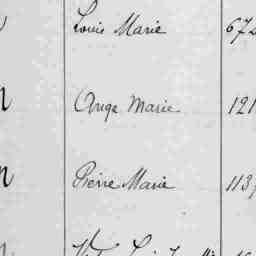 Louis Marie 672
Ange Marie 121
Pierre Marie 113